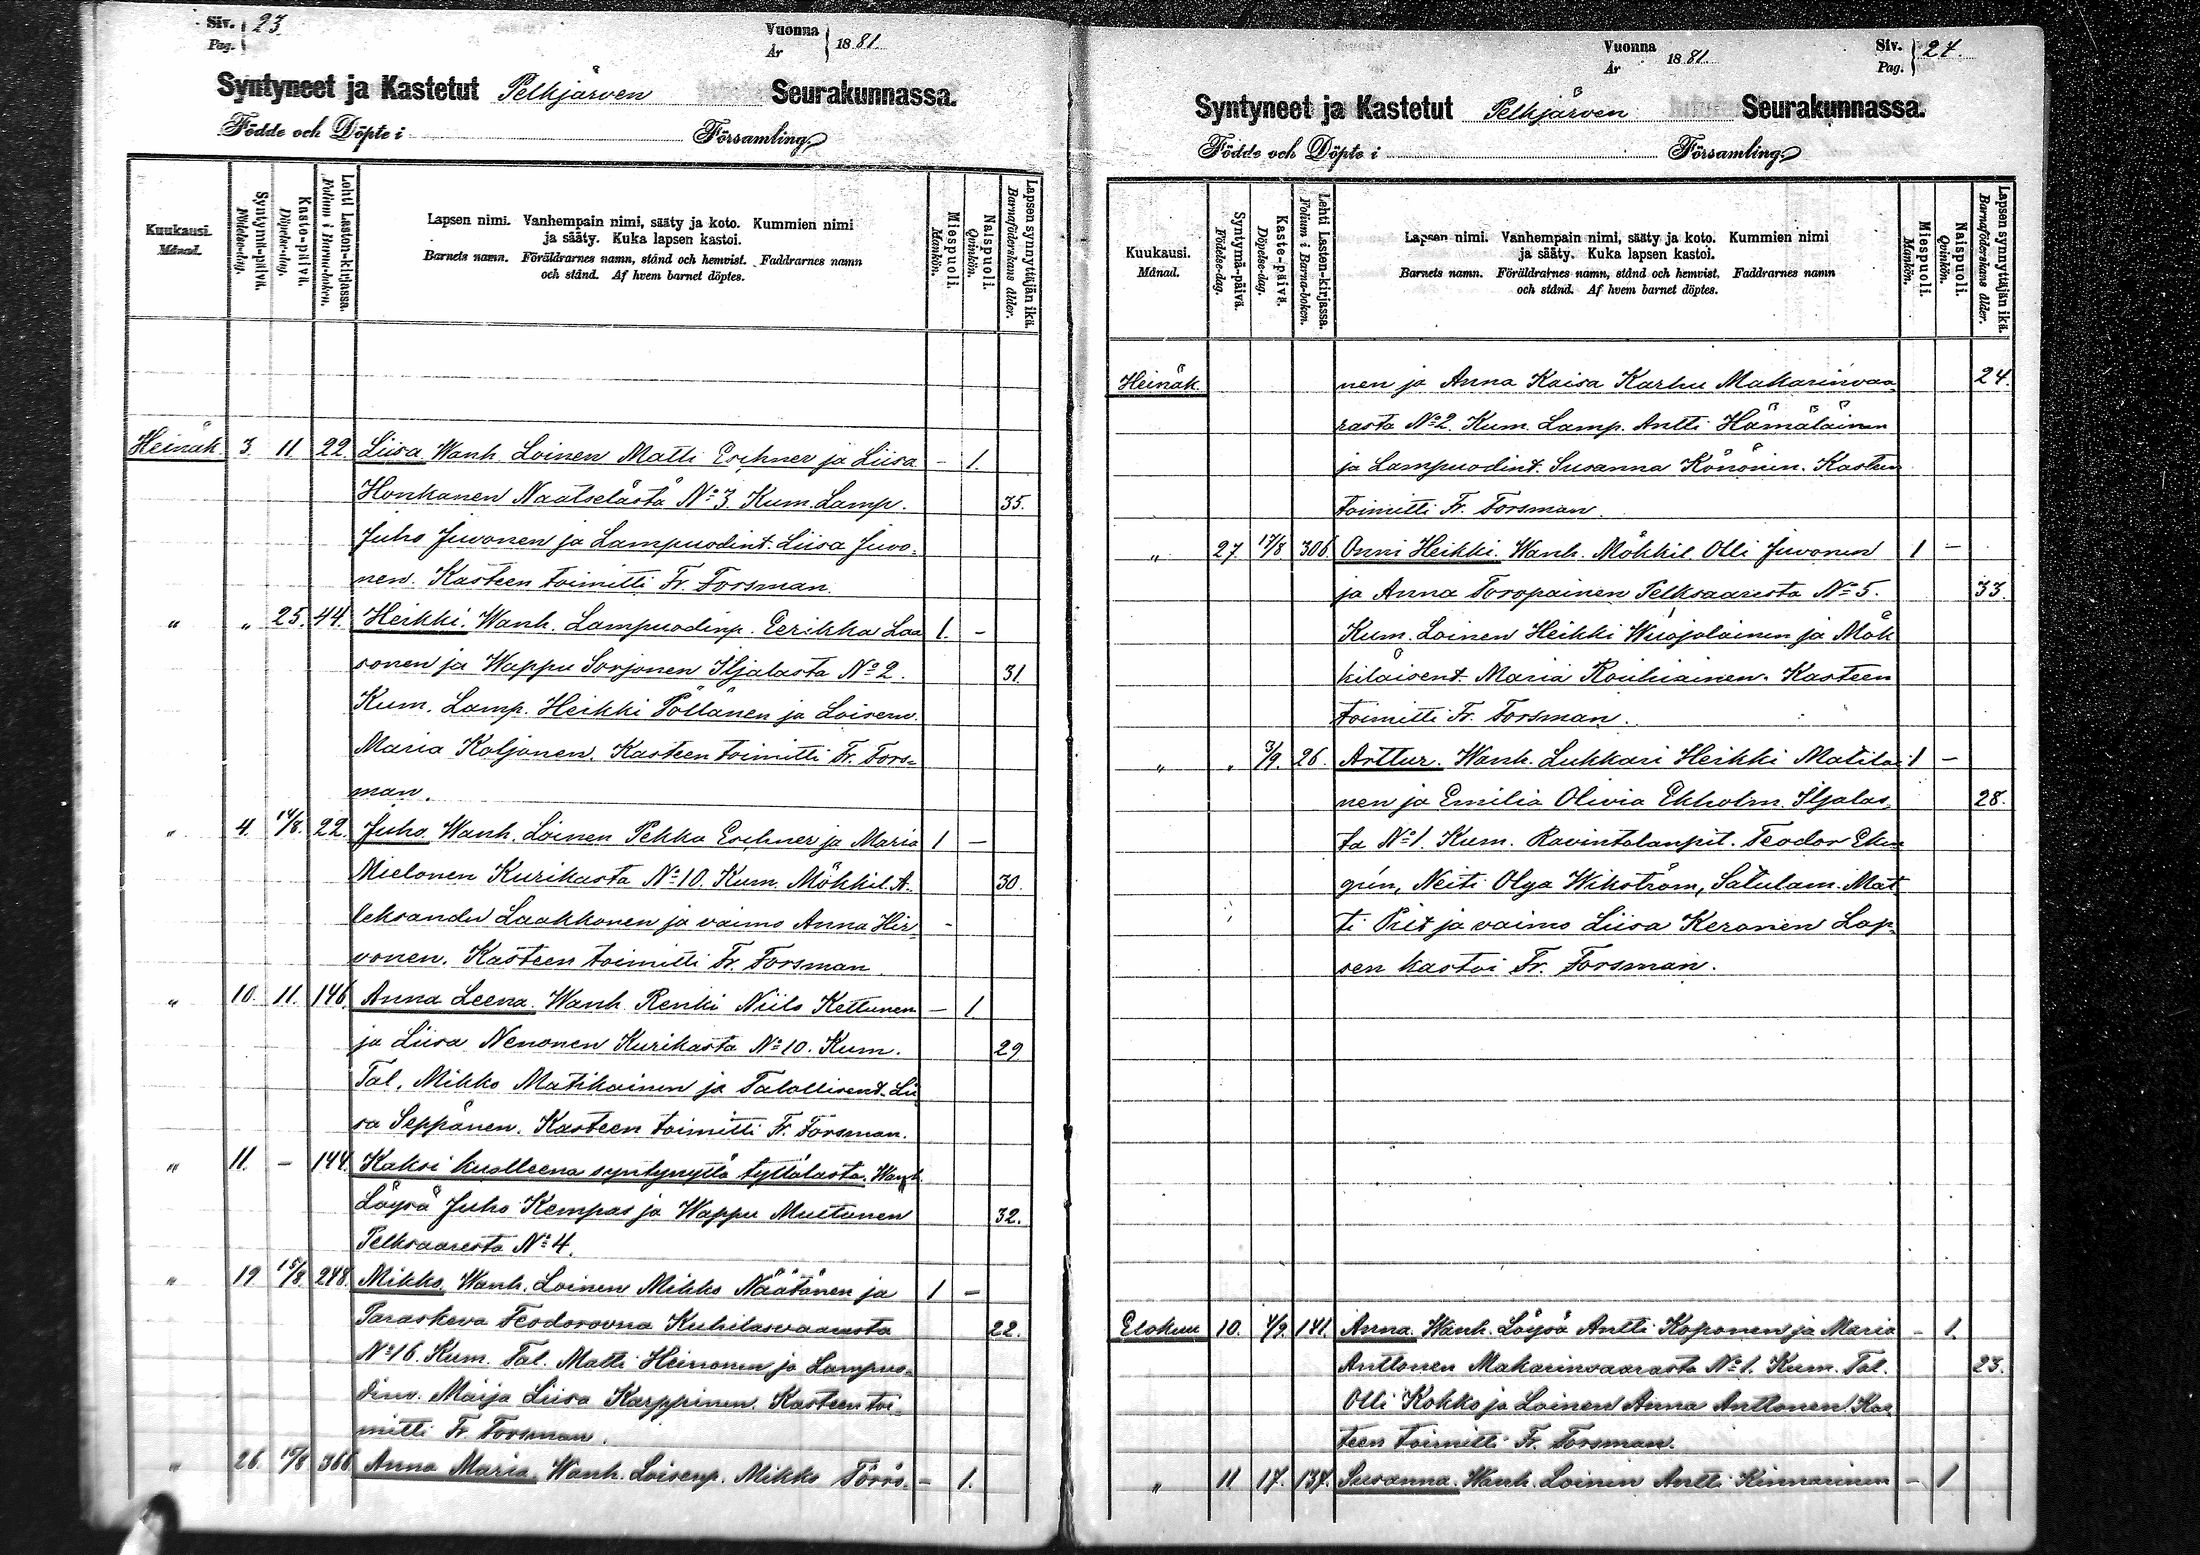 Siv. 23
Pag.
Vuonna 1881.
År
Syntyneet ja Kastetut Pelkjärven Seurakunnassa.
Födde och Döpte i Församling.
Kuukausi. Månad.
Syntymä-päivä. Födelse-dag.
Kaste-päivä. Döpelse-dag.
Lehti Lasten-kirjassa. Folium i Barna-boken.
Lapsen nimi. Vanhempain nimi, sääty ja koto. Kummien nimi
ja sääty. Kuka lapsen kastoi.
Barnets namn. Föräldrarnes namn, stånd och hemvist. Faddrarnes namn
och stånd. Af hvem barnet döptes.
Miespuoli. Mankön.
Naispuoli. Qvinkön.
Lapsen synnyttäjän ikä. Barnaföderskans ålder.
Heinäk. 3. 11. 22. Liisa. Wanh. Loinen Matti Erchner ja Liisa – 1.
Honkanen Naatselästä No 3. Kum. Lamp. 35.
Juho Juvonen ja Lampuodint. Liisa Juvo-
nen. Kasteen toimitti Fr. Forsman.
" " 25. 44. Heikki. Wanh. Lampuodinp. Eerikka Laa 1. –
sonen ja Wappu Sorjonen Iljalasta No 2. 31.
Kum. Lamp. Heikki Pöllänen ja Loisenv.
Maria Koljonen. Kasteen toimitti Fr. Fors-
man.
" 4. 14/8. 22. Juho. Wanh. Loinen Pekka Erchner ja Maria 1 –
Mielonen Kurikasta No 10. Kum. Mökkil. A- 30.
leksander Laakkonen ja vaimo Anna Hir-
vonen. Kasteen toimitti Fr. Forsman.
" 10. 11. 146. Anna Leena. Wanh. Renki Niilo Kettunen – 1.
ja Liisa Nenonen Kurikasta No 10. Kum. 29
Tal. Mikko Matikainen ja Talollisent. Lii
sa Seppänen. Kasteen toimitti Fr. Forsman.
" 11. – 144. Kaksi kuolleena syntynyttä tyttölasta. Wanh.
Löysä Juho Kempas ja Wappu Muttonen 32.
Pelksaaresta No 4.
" 19. 15/8. 248. Mikko. Wanh. Loinen Mikko Näätänen ja 1 –
Paraskeva Feodorovna Kuhilasvaarasta 22.
No 16. Kum. Tal. Matti Heinonen ja Lampuo-
dinv. Maija Liisa Karppinen. Kasteen toi-
mitti Fr. Forsman.
" 26. 15/8 366. Anna Maria. Wanh. Loisenp. Mikko Törrö- – 1.
Vuonna 1881.
År
Siv. 24.
Pag.
Syntyneet ja Kastetut Pelkjärven Seurakunnassa.
Födde och Döpte i Församling.
Kuukausi. Månad.
Syntymä-päivä. Födelse-dag.
Kaste-päivä. Döpelse-dag.
Lehti Lasten-kirjassa. Folium i Barna-boken.
Lapsen nimi. Vanhempain nimi, sääty ja koto. Kummien nimi
ja sääty. Kuka lapsen kastoi.
Barnets namn. Föräldrarnes namn, stånd och hemvist. Faddrarnes namn
och stånd. Af hvem barnet döptes.
Miespuoli. Mankön.
Naispuoli. Qvinkön.
Lapsen synnyttäjän ikä. Barnaföderskans ålder.
Heinäk. nen ja Anna Kaisa Karhu Makarinvaa- 24.
rasta No 2. Kum. Lamp. Antti Hämäläinen
ja Lampuodint. Susanna Könönen. Kasteen
toimitti Fr. Forsman.
" 27. 17/8 306. Onni Heikki. Wanh. Mökkil. Olli Juvonen 1 –
ja Anna Toropainen Pelksaaresta No 5. 33.
Kum. Loinen Heikki Wuojolainen ja Mök
kiläisent. Maria Rouhiainen. Kasteen
toimitti Fr. Forsman.
" " 3/9. 26. Arttur. Wanh. Lukkari Heikki Matilai 1 –
nen ja Emilia Olivia Ekholm Iljalas- 28.
ta No 1. Kum. Ravintolanpit. Feodor
Neiti Olga Wikström, Satulam. Mat-
ti ja vaimo Liisa Keronen Lap-
sen kastoi Fr. Forsman.
Elokuu 10. 4/9. 141. Anna. Wanh. Löysä Antti Koponen ja Maria – 1.
Anttonen Makarinvaarasta No 1. Kum. Tal. 23.
Olli Kokko ja Loinen Anna Anttonen Kas
teen toimitti Fr. Forsman.
" 11 17. 137. Susanna. Wanh. Loinen Antti Kinnarinen – 1